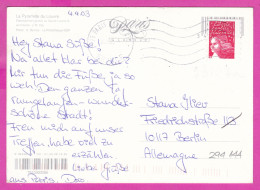 La Pyramide du Louvre
4.9.03
Hey Stana Süße!
Na, alles klar bei dir?
Mir tun die Füße ja so
weh. Den ganzen Tag
rumgelaufen - wunder-
schöne Stadt!
Freu mich auf unser
treffen habe viel zu
erzählen.
Liebe Grüße
aus Paris,
Stana Iliev
Friedrichstraße
10117 Berlin
Allemagne
294 144